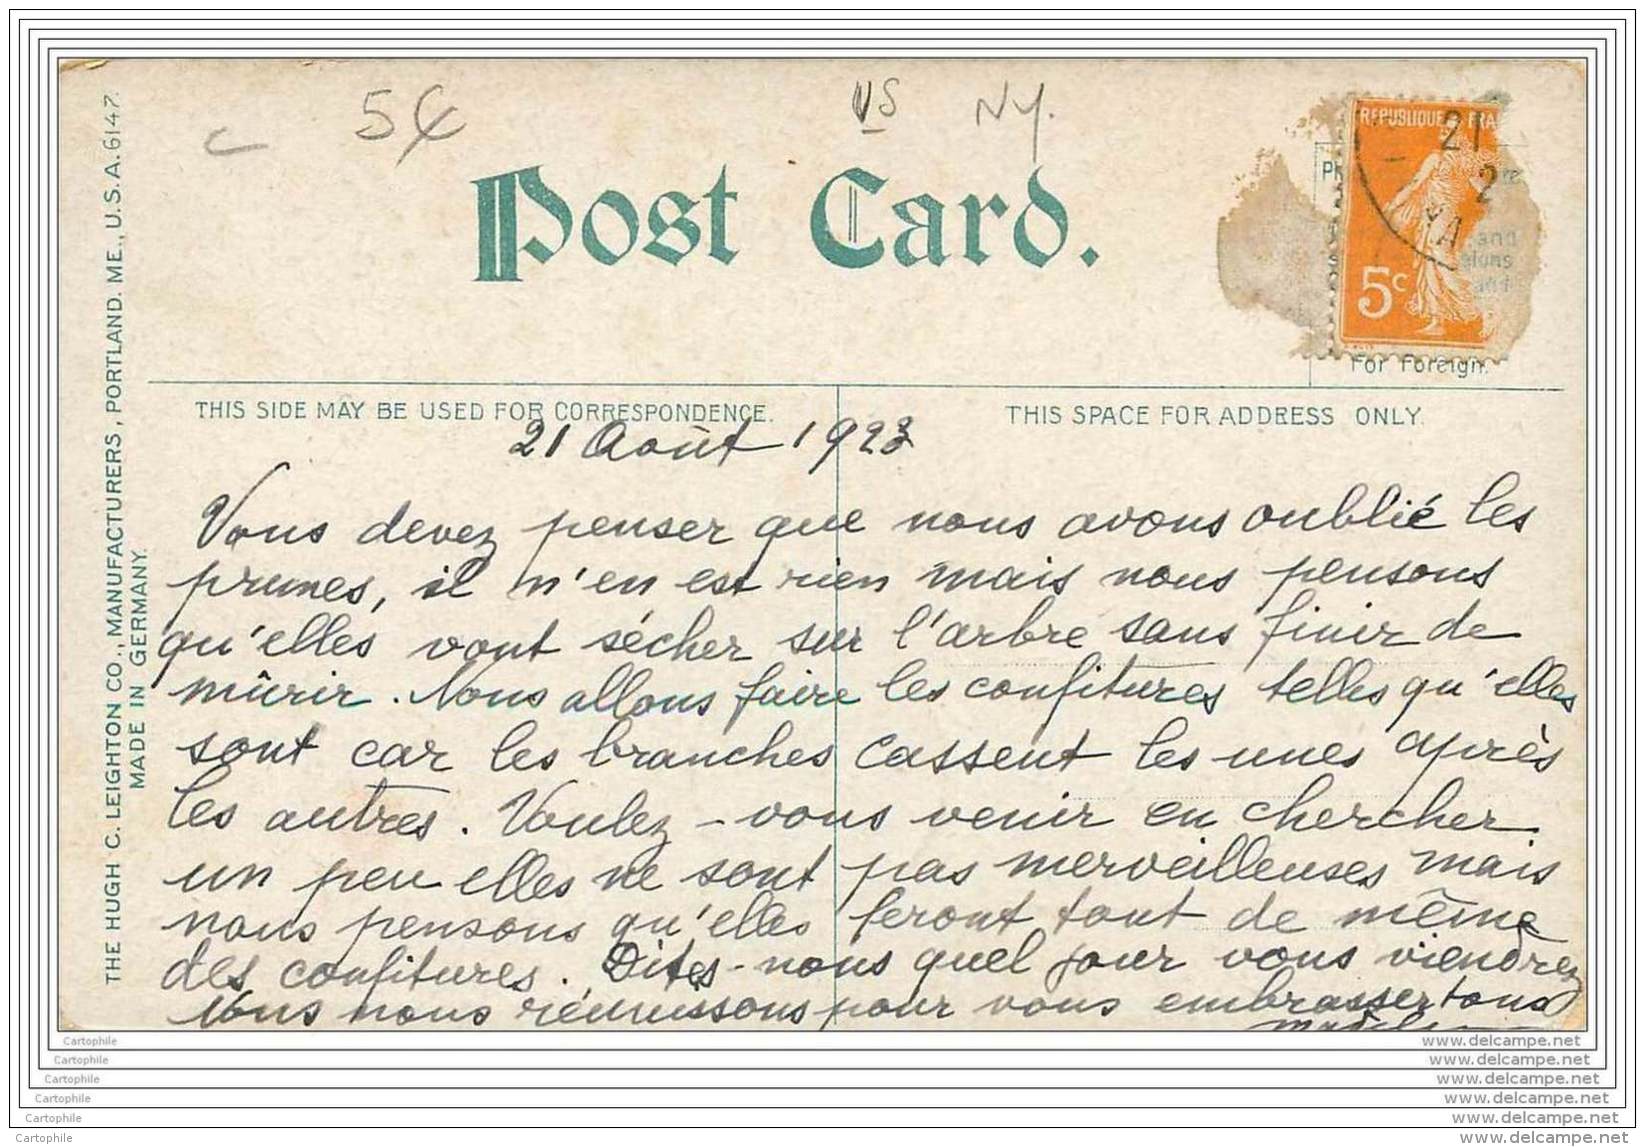 5¢
US NY.
Post Card.
THE HUGH C. LEIGHTON CO., MANUFACTURERS, PORTLAND. ME., U.S.A. 6147.
MADE IN GERMANY.
REPUBLIQUE FRA
21
2
5c
and
and
For Foreign.
THIS SIDE MAY BE USED FOR CORRESPONDENCE.
THIS SPACE FOR ADDRESS ONLY.
21 Août 1923
Vous devez penser que nous avons oublié les
prunes, il n'en est rien mais nous pensons
qu'elles vont sécher sur l'arbre sans finir de
mûrir. Nous allons faire les confitures telles qu'elles
sont car les branches cassent les unes après
les autres. Voulez-vous venir en chercher
un peu elles ne sont pas merveilleuses mais
nous pensons qu'elles feront tout de même
des confitures. Dites-nous quel jour vous viendrez
Nous nous réunissons pour vous embrasser tous
Cartophile www.delcampe.net
Cartophile www.delcampe.net
Cartophile www.delcampe.net
Cartophile www.delcampe.net
Cartophile www.delcampe.net
Cartophile www.delcampe.net